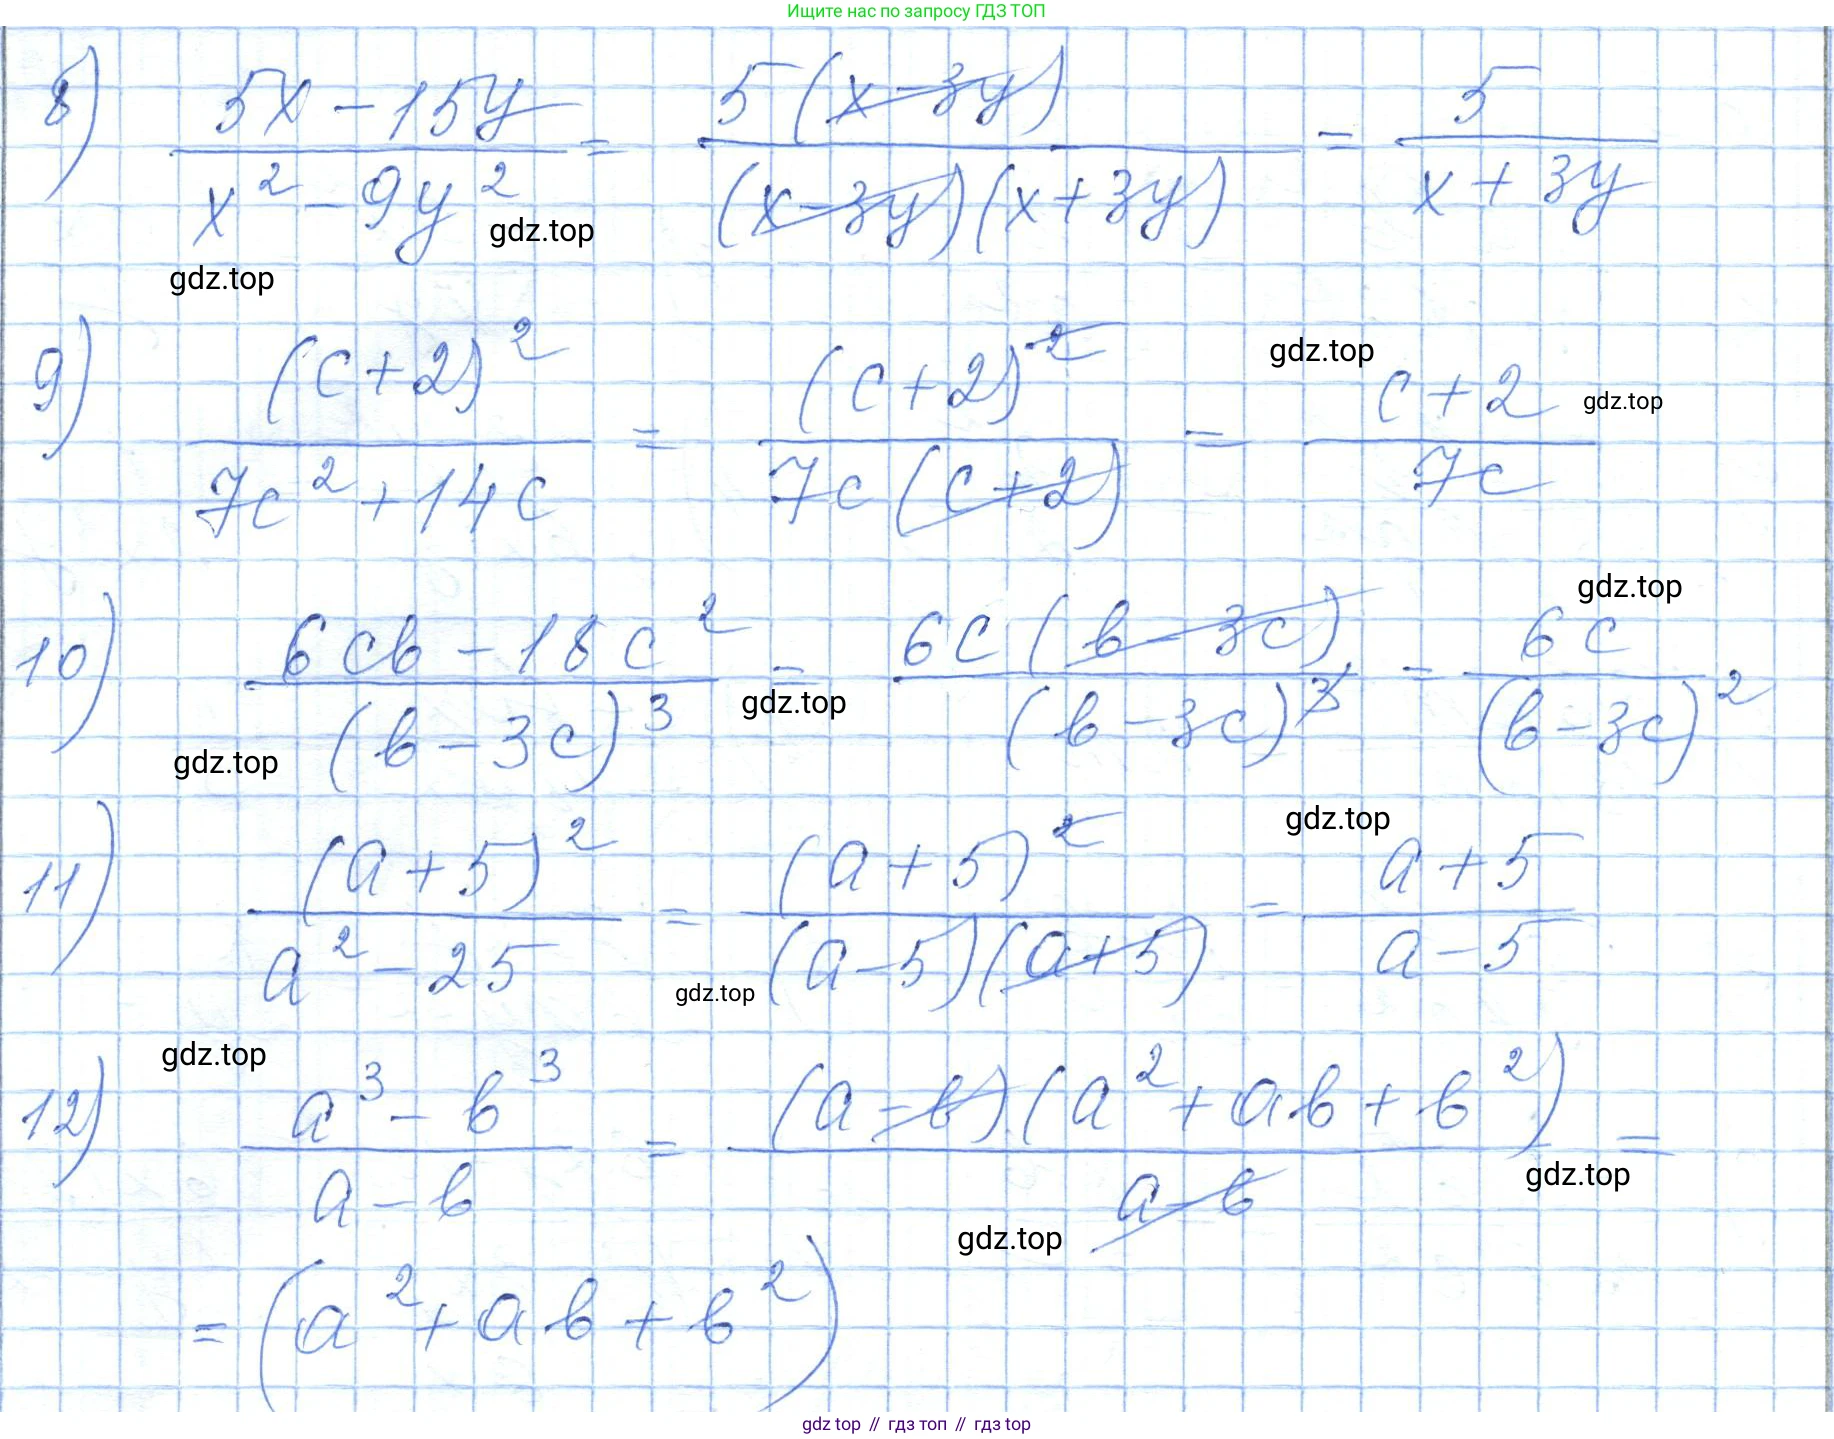 Ищите нас по запросу ГДЗ ТОП
8) (5x - 15y)/(x² - 9y²) = (5(x - 3y))/((x - 3y)(x + 3y)) = 5/(x + 3y)
gdz.top
gdz.top
9) (c + 2)²/(7c² + 14c) = (c + 2)²/(7c(c + 2)) = (c + 2)/(7c)
gdz.top
gdz.top
10) (6cb - 18c²)/(b - 3c)³ = (6c(b - 3c))/(b - 3c)³ = 6c/(b - 3c)²
gdz.top
gdz.top
gdz.top
11) (a + 5)²/(a² - 25) = (a + 5)²/((a - 5)(a + 5)) = (a + 5)/(a - 5)
gdz.top
gdz.top
12) (a³ - b³)/(a - b) = ((a - b)(a² + ab + b²))/(a - b) =
gdz.top
gdz.top
gdz.top
= (a² + ab + b²)
gdz top // гдз топ // gdz top